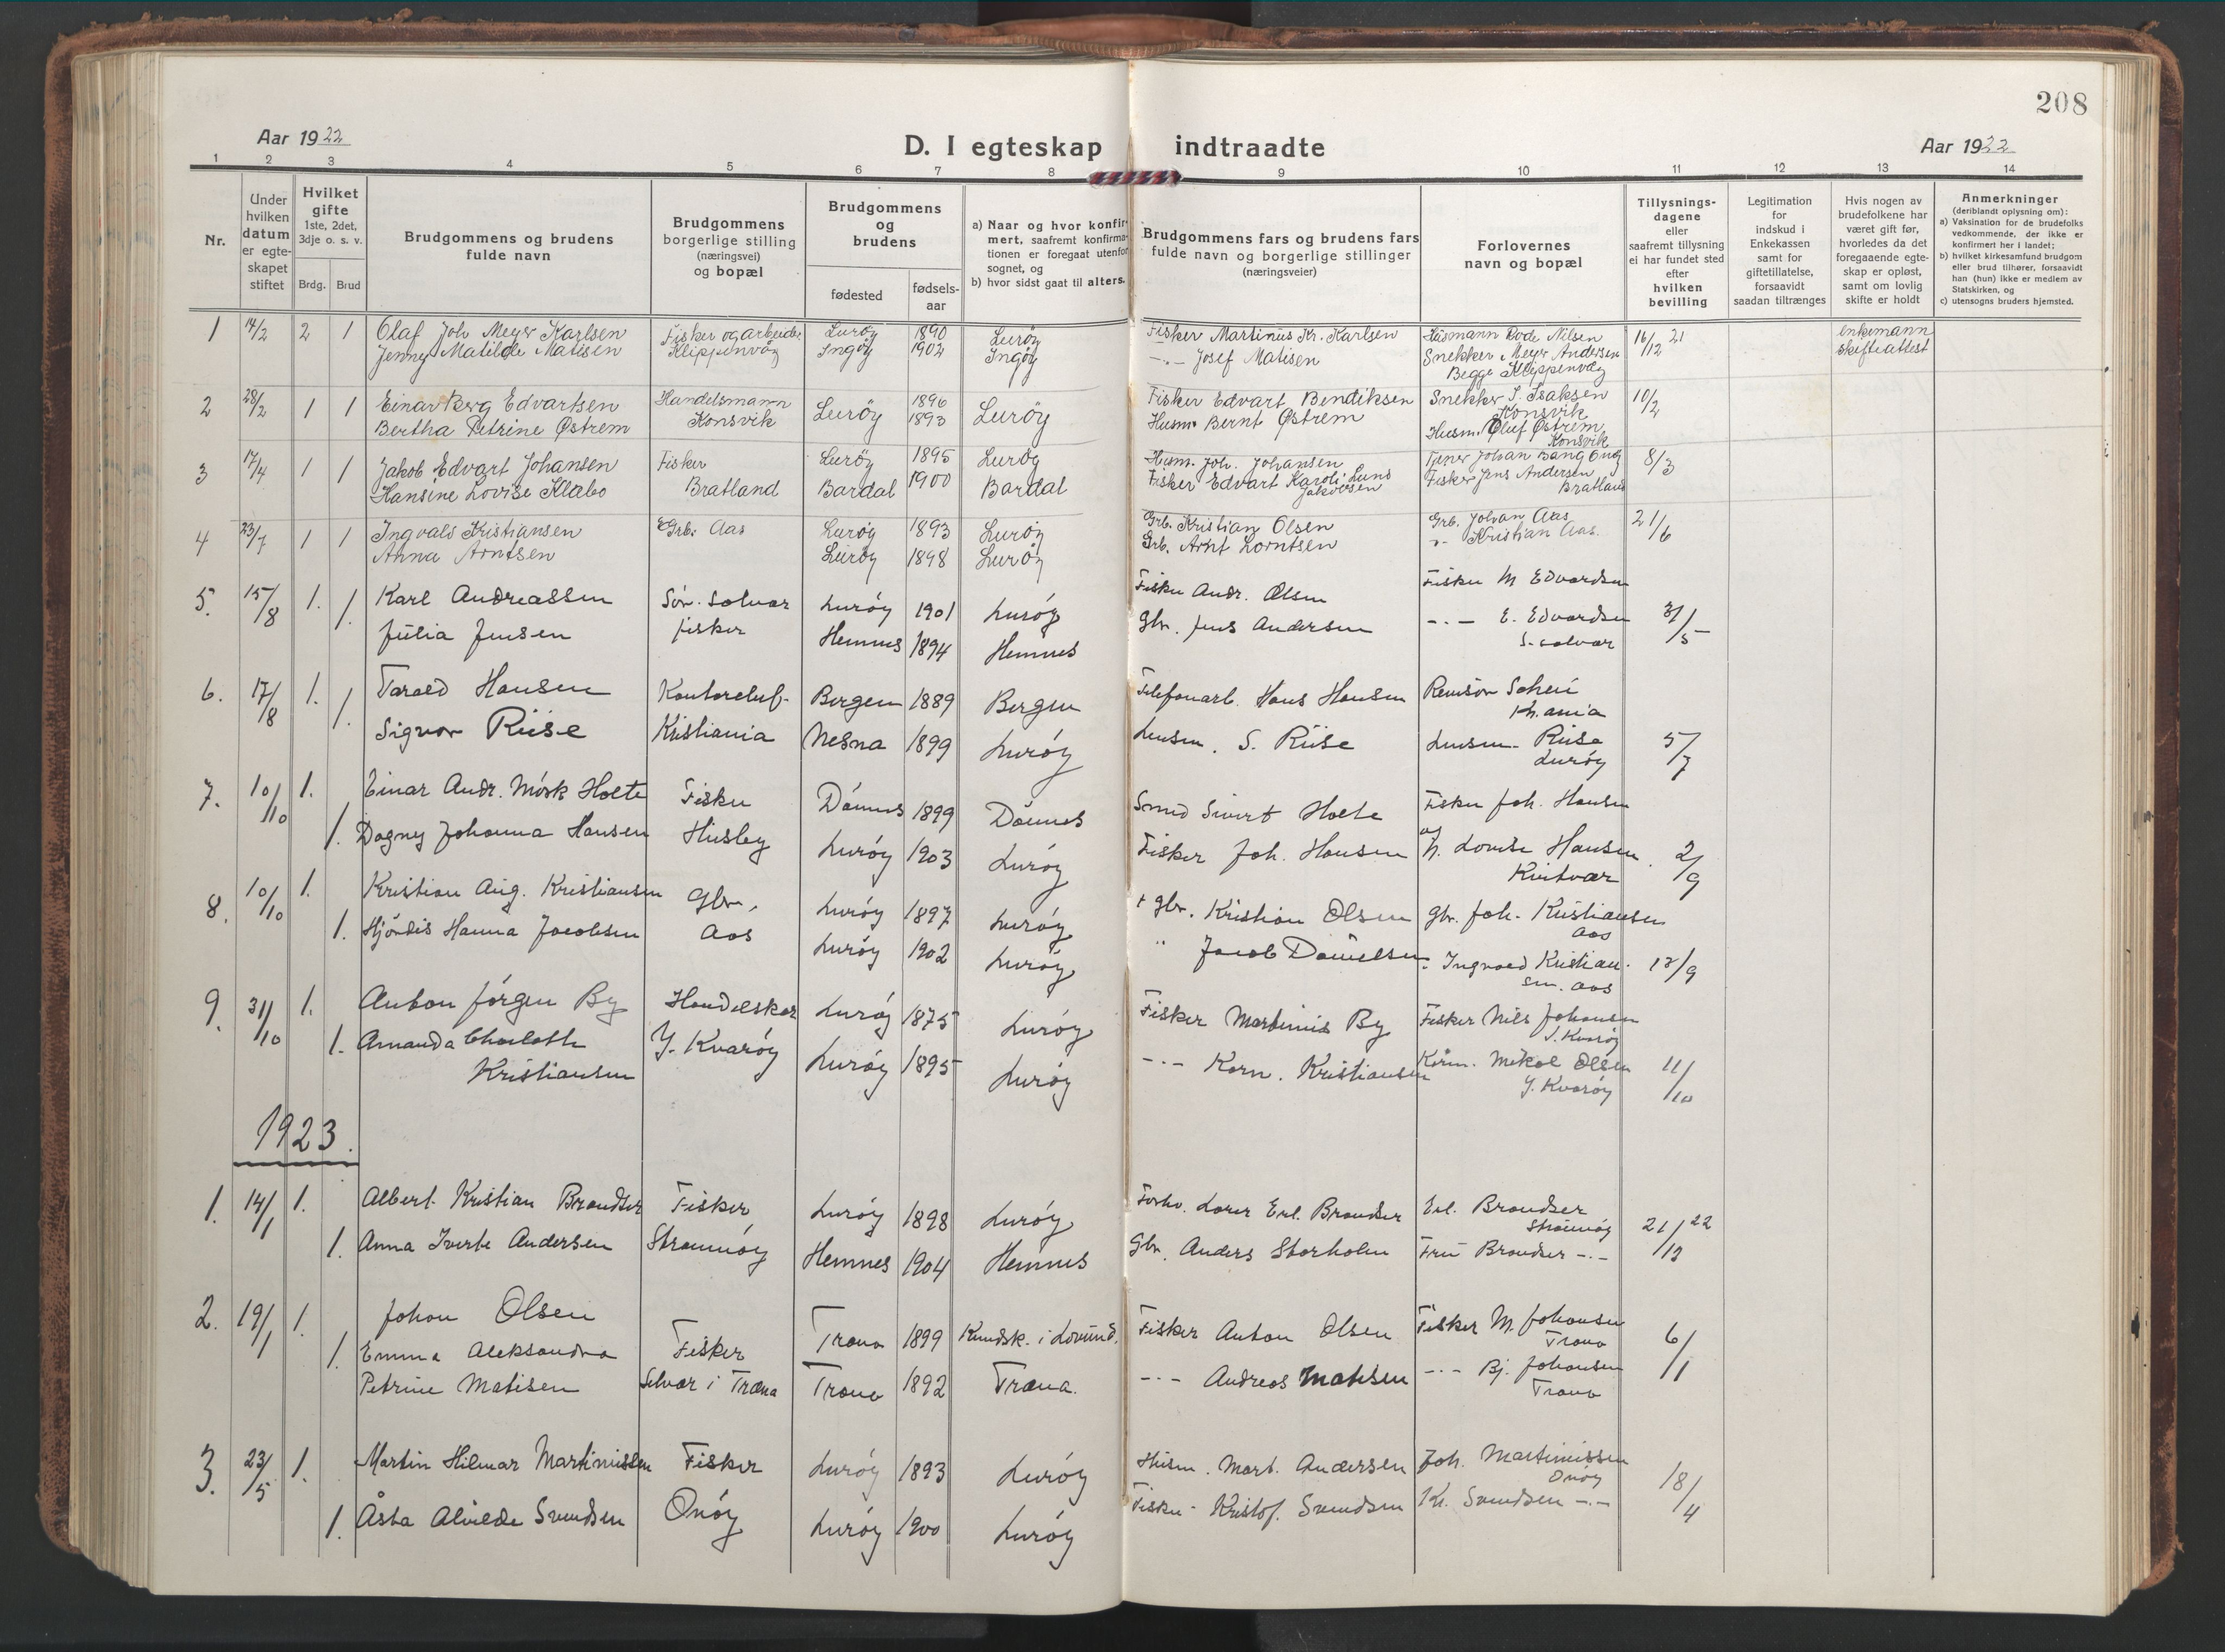 208
Aar 1922
D. I egteskap indtraadte
Aar 1922
1 2 3 4 5 6 7 8 9 10 11 12 13 14
Nr.
Under hvilken datum er egteskapet stiftet
Hvilket gifte 1ste, 2det, 3dje o. s. v.
Brdg. Brud
Brudgommens og brudens fulde navn
Brudgommens borgerlige stilling (næringsvei) og bopæl
Brudgommens og brudens
fødested
fødselsaar
a) Naar og hvor konfirmert, saafremt konfirmationen er foregaat utenfor sognet, og
b) hvor sidst gaat til alters.
Brudgommens fars og brudens fars fulde navn og borgerlige stillinger (næringsveier)
Forlovernes navn og bopæl
Tillysningsdagene eller saafremt tillysning ei har fundet sted efter hvilken bevilling
Legitimation for indskud i Enkekassen samt for giftetillatelse, forsaavidt saadan tiltrænges
Hvis nogen av brudefolkene har været gift før, hvorledes da det foregaaende egteskap er opløst, samt om lovlig skifte er holdt
Anmerkninger (deriblandt oplysning om):
a) Vaksination for de brudefolks vedkommende, der ikke er konfirmert her i landet;
b) hvilket kirkesamfund brudgom eller brud tilhører, forsaavidt han (hun) ikke er medlem av Statskirken, og
c) utensogns bruders hjemsted.
1 14/2 2 1 Olaf Joh Meyer Karlsen Fisker og arbeider Lurøy 1890 Lurøy Fisker Martinus Kr. Karlsen Husmann Bode Nilsen 16/12 21 enkemann
Jenny Matilde Matisen Klippenvåg Ingøy 1902 Ingøy -"- Josef Matisen Snekker Meyer Andersen skifteattest
Begge Klippenvåg
2 28/2 1 1 Einar Berg Edvartsen Handelsmann Lurøy 1896 Lurøy Fisker Edvart Bendiksen Snekker I. Isaksen 10/2
Konsvik
Bertha Petrine Østrem Konsvik 1893 Husm. Bernt Østrem Husm. Oluf Østrem
Konsvik
3 17/4 1 1 Jakob Edvart Johansen Fisker Lurøy 1895 Lurøy Husm. Joh. Johansen Tjener Johan Bang Eng 8/3
Hansine Lovise Klabo Bratland Bardal 1900 Bardal Fisker Edvart Karoli: Lund Fisker Jens Andersen
Jakobsen Bratland
4 23/7 1 1 Ingvald Kristiansen Grb. Aas Lurøy 1893 Lurøy Grb. Kristian Olsen Grb. Johan Aas 21/6
Anna Arntsen Lurøy 1898 Lurøy Grb. Arnt Lorntsen -"- Kristian Aas
5. 15/8 1. 1. Karl Andreassen Sør. Solvær Lurøy 1901 Lurøy Fisker Andr. Olsen Fisker M Edvardsen
Julia Jensen Fisker Hemnes 1894 Hemnes Gbr. Jens Andersen -"- E. Edvardsen
S. solvær
6. 17/8 1. 1. Harald Hansen Bergen 1889 Bergen Telefonarb. Hans Hansen Revisor Schei
Kr.ania
Signor Riise Kristiania Nesna 1899 Lurøy Lensm. S. Riise Lensm. Riise 5/7
Lurøy
7. 10/10 1. Einar Andr. Mørk Holte Fisker Dønnes 1899 Dønnes Smed Sivert Holte Fisker Joh. Hansen
1. Dagny Johanna Hansen Husby Lurøy 1903 Lurøy Fisker Joh. Hansen og N. Lovise Hansen 2/9
Kvitvær
8. 10/10 1. Kristian Aug. Kristiansen Gbr. Lurøy 1897 Lurøy + gbr. Kristian Olsen Gbr. Joh. Kristiansen
Aas
1. Hjørdis Hanna Jacobsen Aas Lurøy 1902 Lurøy " Jacob Danielsen " Ingvald Kristian-
sen. Aas
9. 31/10 1. Anton Jørgen By Handelskar Lurøy 1875 Lurøy Fisker Martinus By Fisker Nils Johansen
Y. Kvarøy
1. Amanda Charlotte Y. Kvarøy Lurøy 1895 Lurøy -"- Korn. Kristiansen Mekal Olsen 11/10
Kristiansen Y. Kvarøy
1923.
1. 14/1 1. Albert Kristian Brandser Fisker Lurøy 1898 Lurøy Forhv. Lærer Erl. Brandser Erl. Brandser 21/12 22
Straumøy
1. Anna Iverte Andersen Straumøy Hemnes 1904 Hemnes Gbr. Anders Storholm Fru Brandser -"-
2. 19/1 1. Johan Olsen Træna 1899 Kundsk. i Lovund. Fisker Anton Olsen Fisker M. Johansen 6/1
Træna
1. Emma Aleksandra Fisker
Petrine Matisen Selvær i Træna Træna 1892 Træna. -"- Andreas Matisen -"- Bj. Johansen
Træna
3. 23/5 1. Martin Hilmar Martinussen Fisker Lurøy 1893 Lurøy Husm. Mart. Andersen Joh. Martinussen 18/4
Onøy
1. Åsta Alvilde Svendsen Onøy Lurøy 1900 Lurøy Fisker Kristof. Svendsen Kr. Svendsen -"-